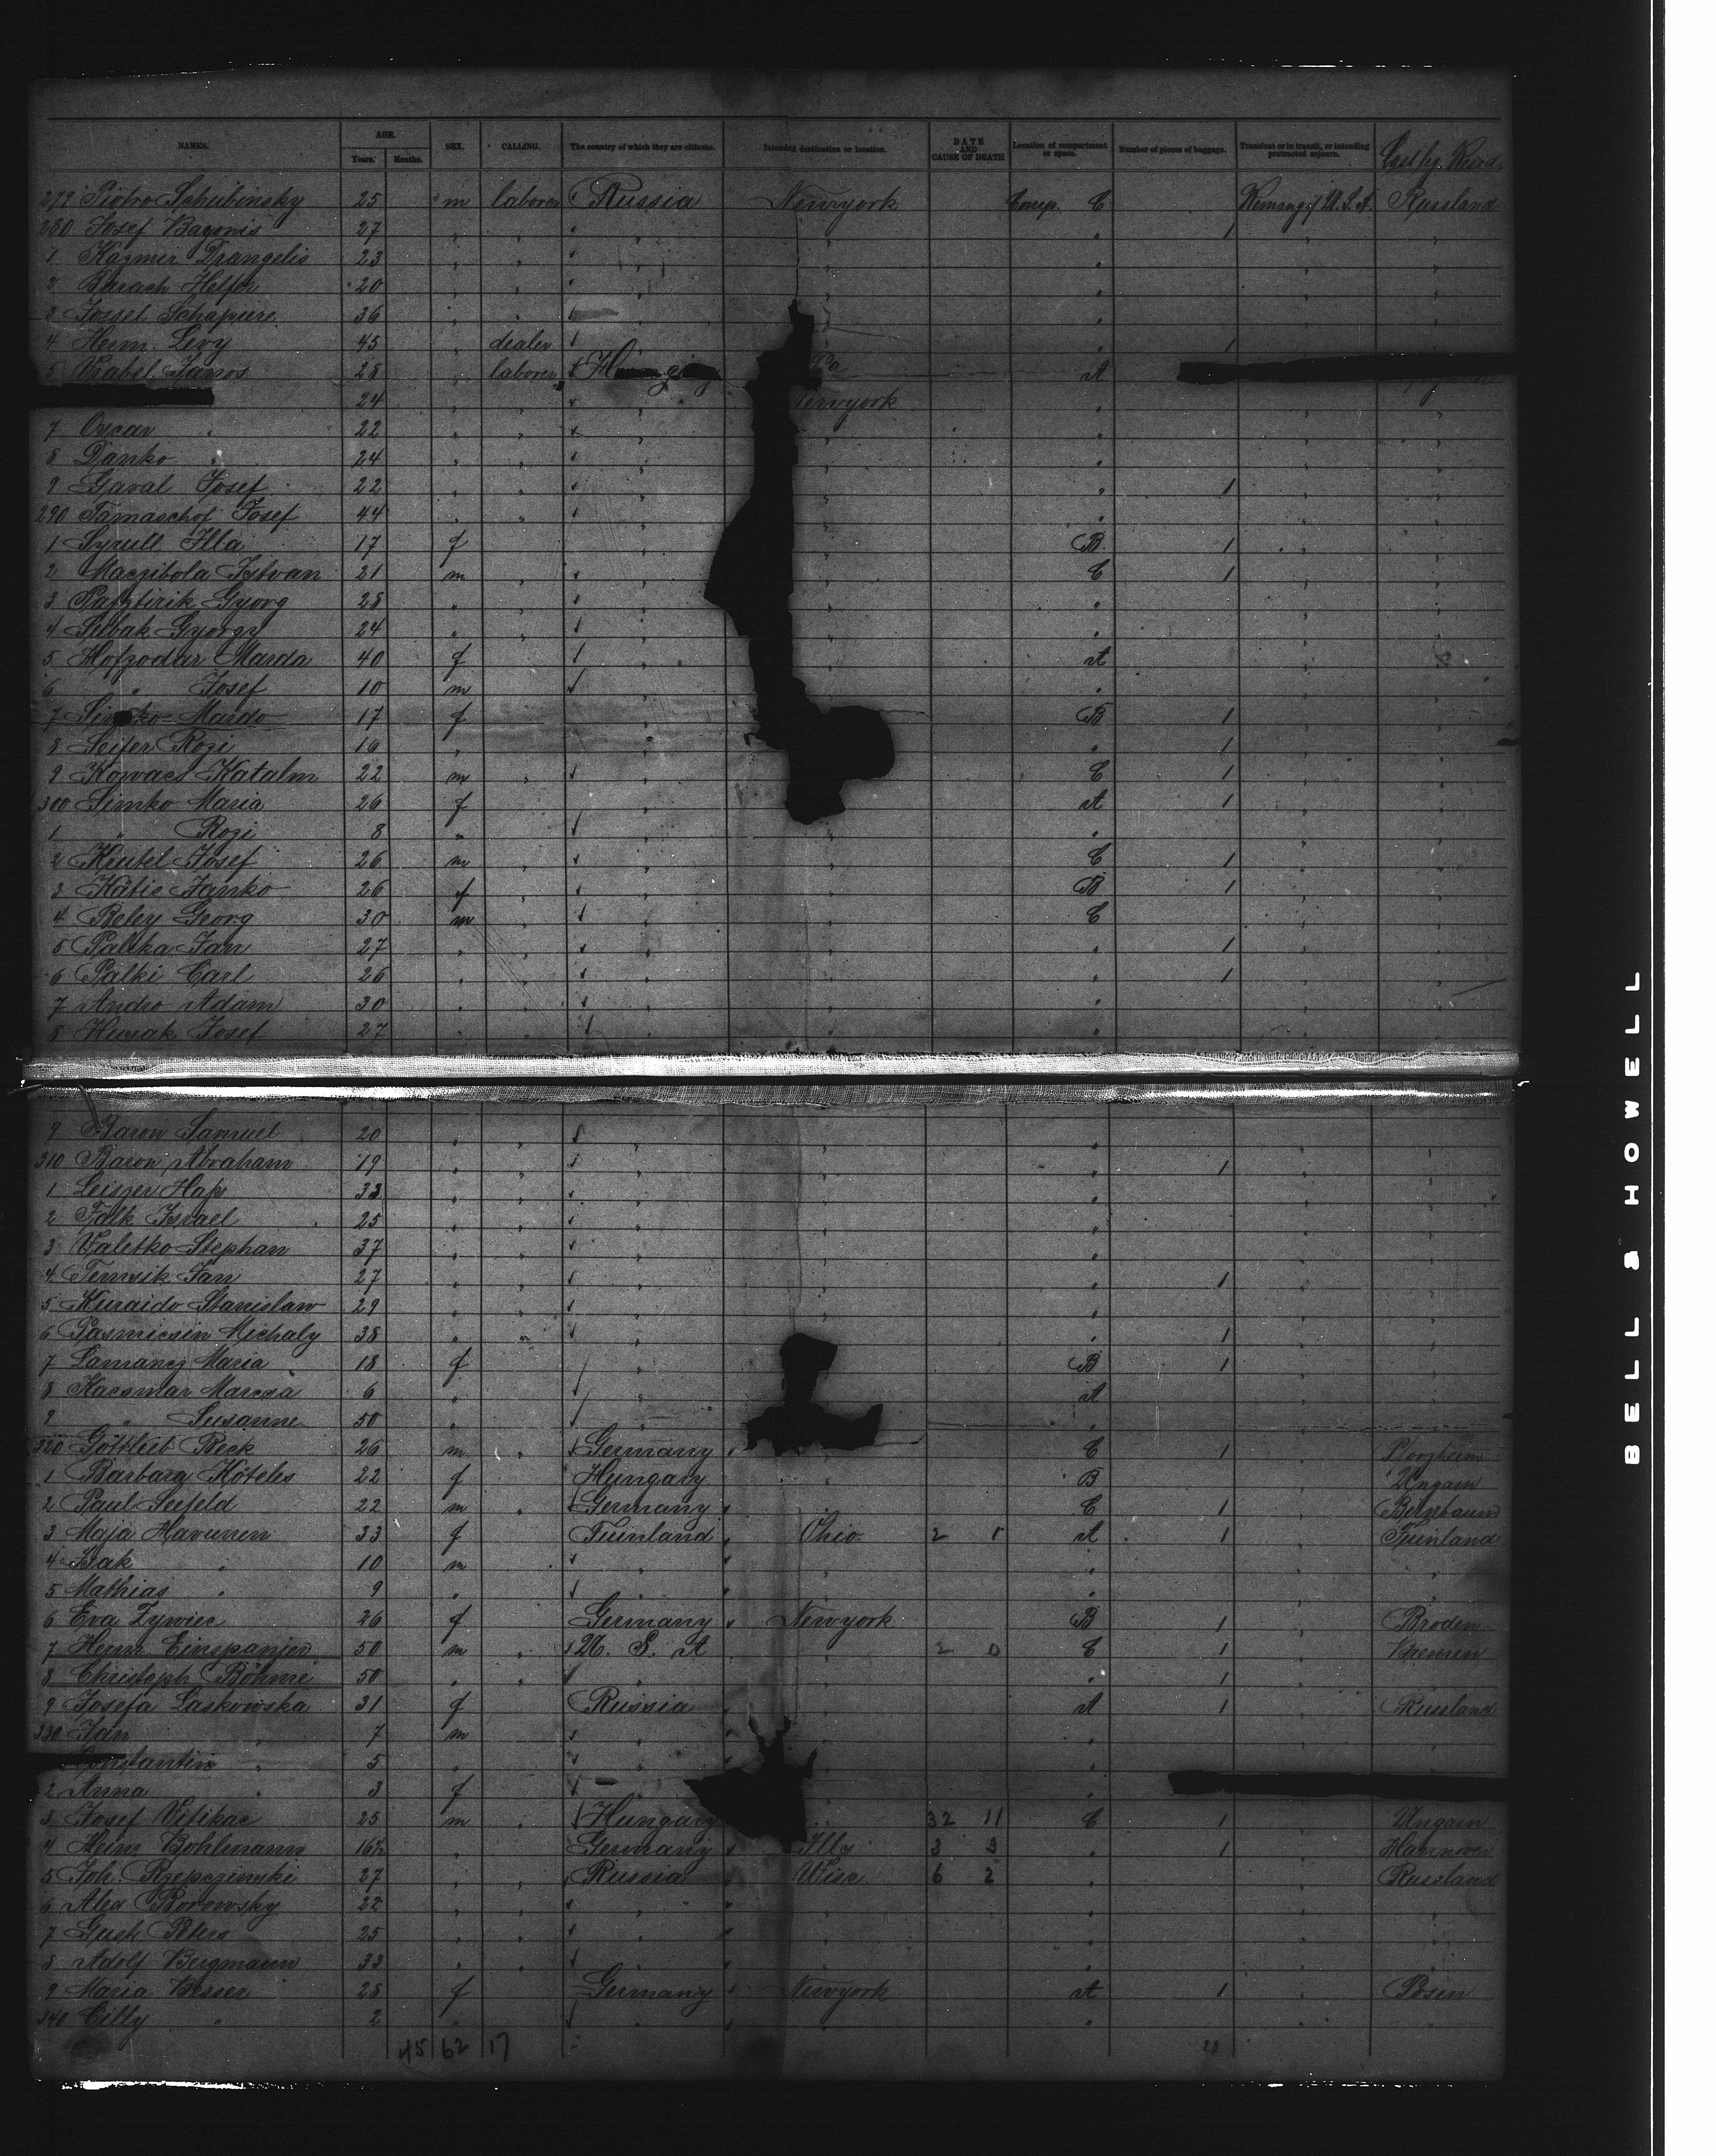 NAMES. AGE. Years. Months. SEX. CALLING. The country of which they are citizens. Intended destination or location. DATE AND CAUSE OF DEATH Location of compartment or space. Number of pieces of baggage. Transient or in transit, or intending protracted sojourn.
279 Piotro Schubinsky 25 m laborer Russia Newyork Comp. C U.S.A. Russland
280 Josef Bagonis 27 1
1 Kazmir Drangelis 23
2 Barach 20
3 Jossel Schapiere 36
4 Herm. Levy 45 dealer 1
5 Vrabel Janos 28 laborer Pa A
24 Newyork
7 Oscar 22
8 Danko 24
9 Gaval Josef 22 1
290 Tamaschof Josef 44
1 Syrull Illa 17 f B 1
2 Maczibola Istvan 21 m C 1
3 Gyorg 28
4 Subak Gyorgy 24
5 Hofzodar Marda 40 f A
6 " Josef 10 m
7 Mardo 17 f B 1
8 Seiler Rozi 16 1
9 Kowacs Katalm 22 m C 1
300 Simko Maria 26 f A 1
1 " Rozi 8
2 Josef 26 m C 1
3 Katie Janko 26 f B 1
4 Beley Georg 30 m C
5 Palika Jan 27 1
6 Palki Carl 26 1
7 Andro Adam 30
8 Josef 27
9 Baron Samuel 20
310 Baron Abraham 19 1
1 Leiszer 33
2 Falk Israel 25
3 Valetko Stephan 37
4 Jan 27 1
5 Kuraido Stanislaw 29
6 Michaly 38 1
7 Maria 18 f B 1
8 Kacsmar Marcsa 6 A
9 " Susanne 50
320 Gottlieb Beck 26 m Germany C 1
1 Barbara Köteles 22 f Hungary B Ungarn
2 Paul Seefeld 22 m Germany C 1 Birnbaum
3 Maja Havunen 33 f Finnland Ohio 2 1 A 1 Finnland
4 Isak 10 m
5 Mathias 9
6 Eva Zywiec 26 f Germany Newyork B 1 Broden
7 Herm. Einspanjer 50 m U. S. A 2 0 C 1 Bremen
8 Christoph Böhme 50 1
9 Josefa Laskowska 31 f Russia A 1 Russland
330 Jan 7 m
Constantin 5
2 Anna 3 f
3 Josef Vitikac 25 m Hungary 32 11 C 1 Ungarn
4 Heinr Bohlmann 16½ Germany Ills 3 3 1 Hannover
5 Joh. Rzepczinski 27 Russia Wisc. 6 2 Russland
6 Alex Borowsky 22
7 Gust. Peters 25
8 Adolf Bergmann 33
9 Maria Besser 28 f Germany Newyork A 1 Posen
340 Cilly " 2
45 62 17 28
BELL & HOWELL